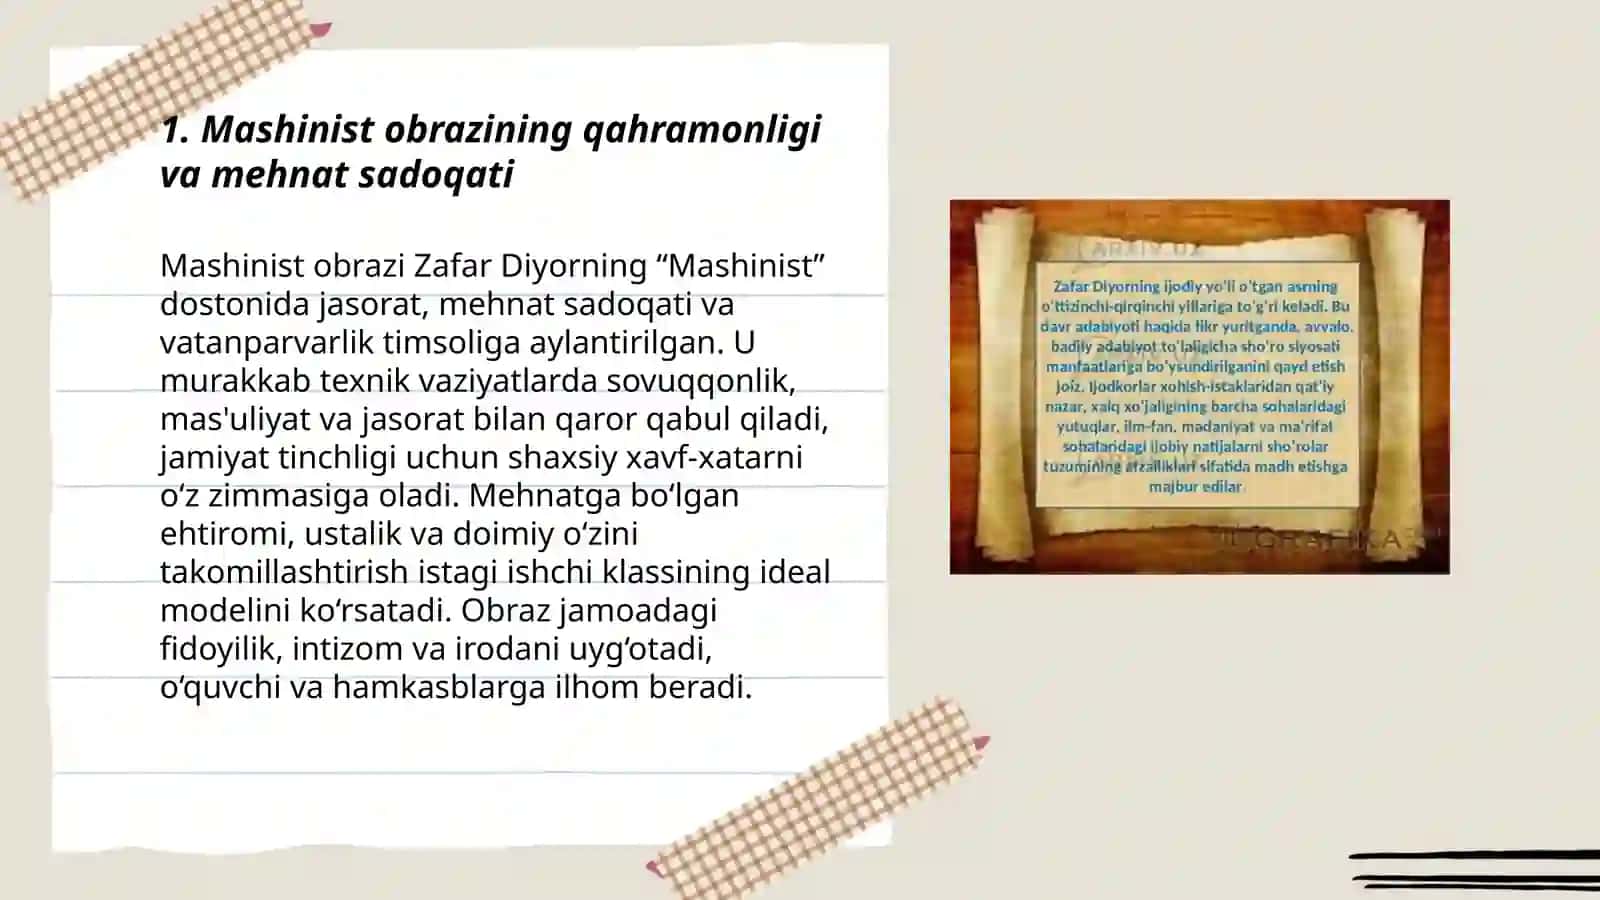 1. Mashinist obrazining qahramonligi
va mehnat sadoqati
Mashinist obrazi Zafar Diyorning “Mashinist”
dostonida jasorat, mehnat sadoqati va
vatanparvarlik timsoliga aylantirilgan. U
murakkab texnik vaziyatlarda sovuqqonlik,
mas'uliyat va jasorat bilan qaror qabul qiladi,
jamiyat tinchligi uchun shaxsiy xavf-xatarni
o‘z zimmasiga oladi. Mehnatga bo‘lgan
ehtiromi, ustalik va doimiy o‘zini
takomillashtirish istagi ishchi klassining ideal
modelini ko‘rsatadi. Obraz jamoadagi
fidoyilik, intizom va irodani uyg‘otadi,
o‘quvchi va hamkasblarga ilhom beradi.
ARXIV.UZ
Zafar Diyorning ijodiy yo'li o'tgan asrning
o'ttizinchi-qirqinchi yillariga to'g'ri keladi. Bu
davr adabiyoti haqida fikr yuritganda, avvalo,
badiiy adabiyot to'laligicha sho'ro siyosati
manfaatlariga bo'ysundirilganini qayd etish
joiz. Ijodkorlar xohish-istaklaridan qat'iy
nazar, xalq xo'jaligining barcha sohalaridagi
yutuqlar, ilm-fan, madaniyat va ma'rifat
sohalaridagi ijobiy natijalarni sho'rolar
tuzumining afzalliklari sifatida madh etishga
majbur edilar.
GRAFIKA